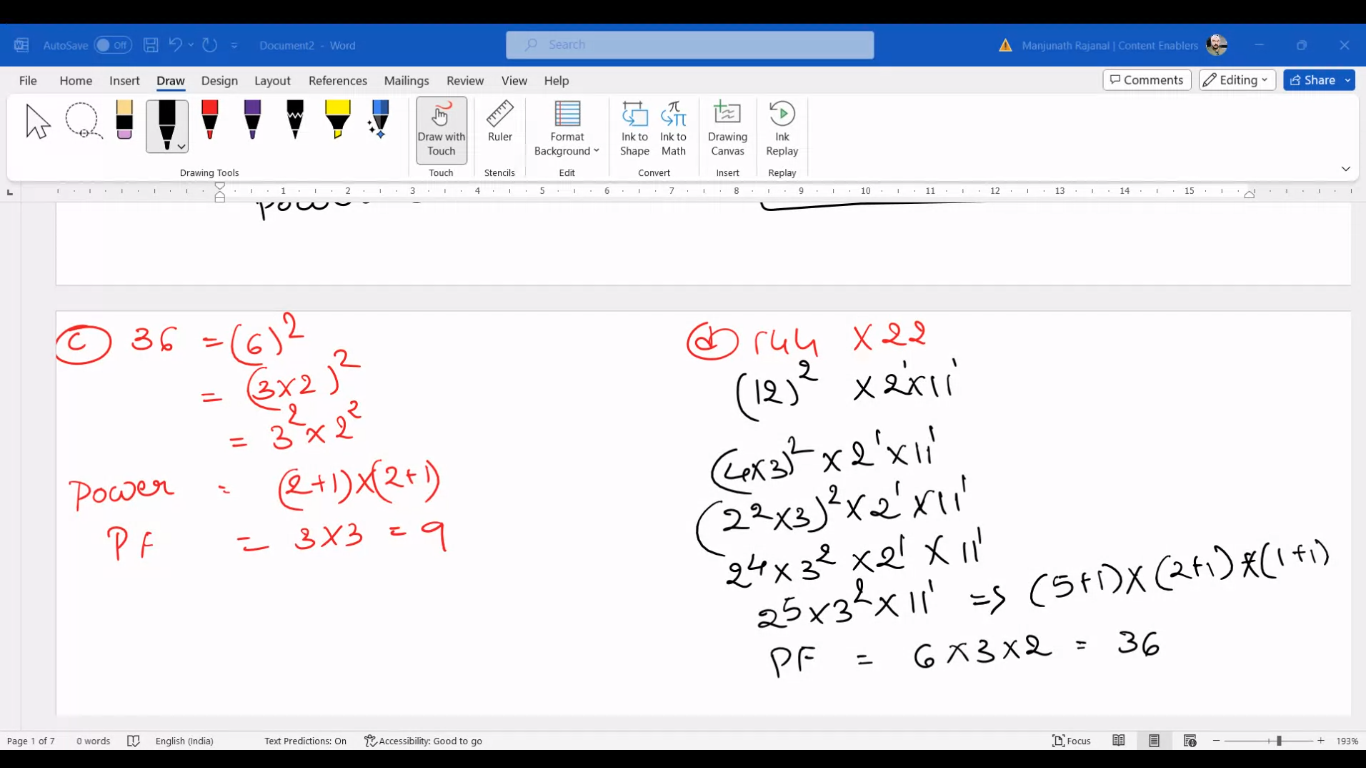 AutoSave Off Document2 - Word Search Manjunath Rajanal | Content Enablers
File Home Insert Draw Design Layout References Mailings Review View Help Comments Editing Share
Draw with Touch Ruler Format Background Ink to Shape Ink to Math Drawing Canvas Ink Replay
Drawing Tools Touch Stencils Edit Convert Insert Replay
1 2 3 4 5 6 7 8 9 10 11 12 13 14 15
power
c 36 = (6)²
= (3×2)²
= 3² × 2²
Power = (2+1)×(2+1)
PF = 3×3 = 9
d 144 × 22
(12)² × 2¹×11¹
(4×3)² × 2¹ × 11¹
(2² × 3)² × 2¹ × 11¹
2⁴ × 3² × 2¹ × 11¹
2⁵ × 3² × 11¹ => (5+1) × (2+1) × (1+1)
PF = 6 × 3 × 2 = 36
Page 1 of 7 0 words English (India) Text Predictions: On Accessibility: Good to go Focus 193%